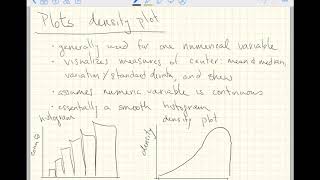 Plots density plot
• generally used for one numerical variable
• visualizes measures of center: mean & median,
variation/standard deviatn, and skew
• assumes numeric variable is continuous
• essentially a smooth histogram
histogram
density plot
count
density